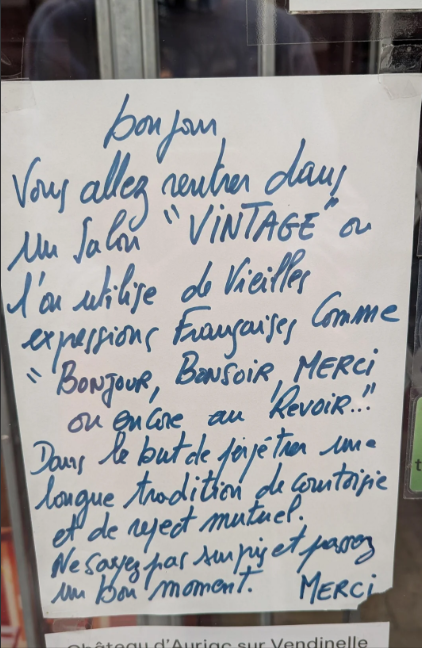 bonjour
Vous allez rentrer dans
un Salon "VINTAGE" ou
l'on utilise de Vieilles
expressions Françaises Comme
"BONJOUR, BONSOIR, MERCI
ou encore au Revoir..."
Dans le but de perpétrer une
longue tradition de courtoisie
et de respect mutuel.
Ne soyez pas surpris et passez
un bon moment. MERCI
Château d'Auriac sur Vendinelle